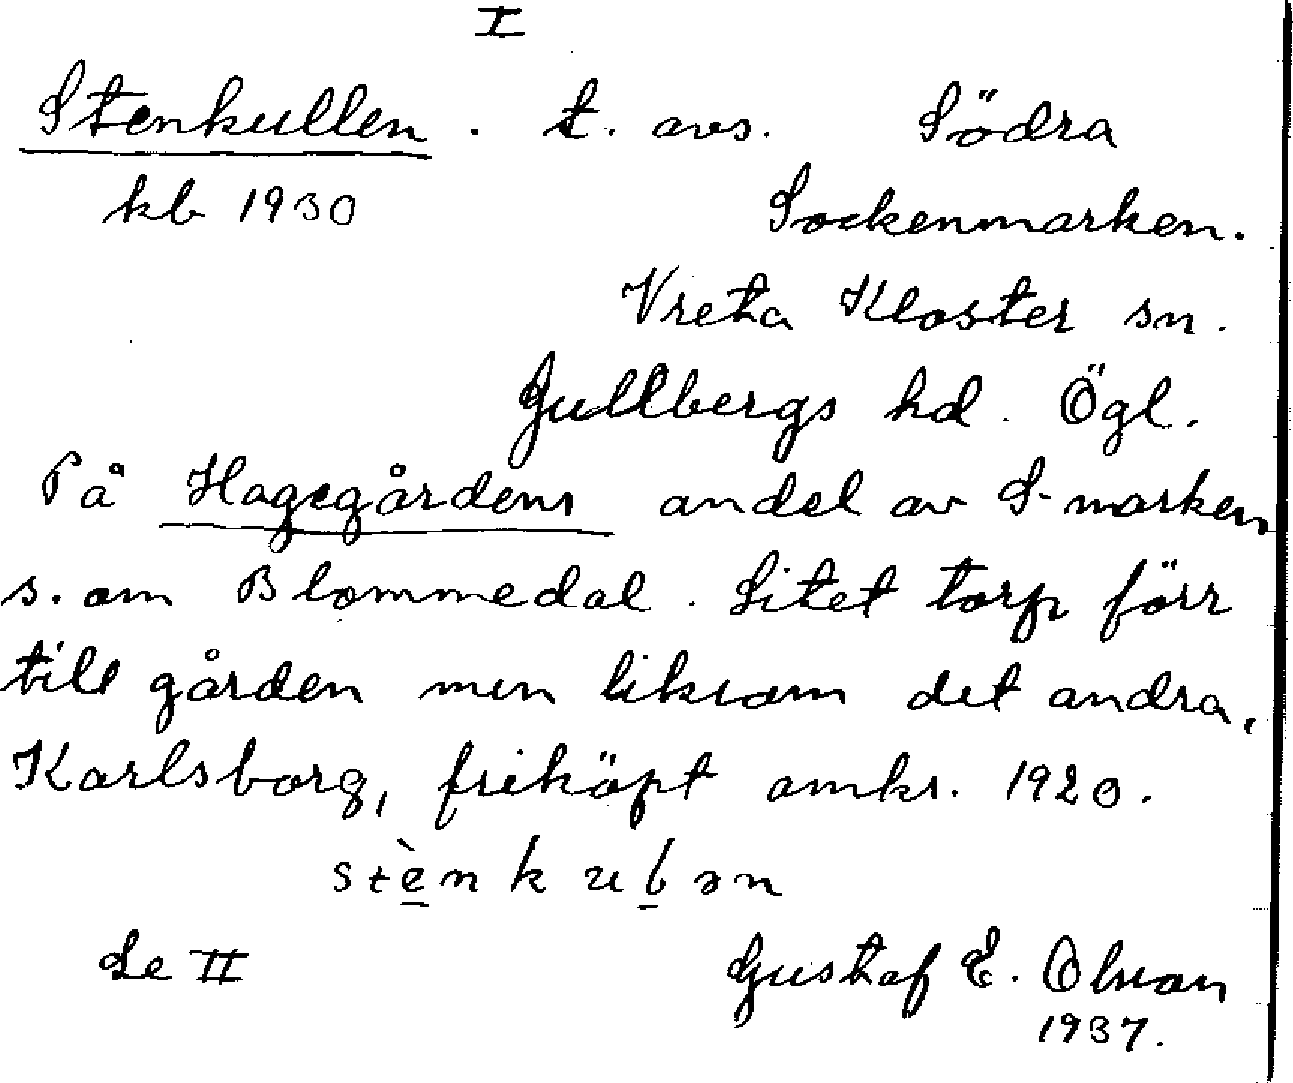 I
Stenkullen. t. avs. Södra
kb 1930 Sockenmarken.
Vreta Kloster sn.
Gullbergs hd. Ögl.
På Hagegårdens andel av S-marken
s. om Blommedal. Litet torp förr
till gården men liksom det andra,
Karlsborg, friköpt omkr. 1920.
stènkuɭən
Se II Gustaf E. Olson
1937.